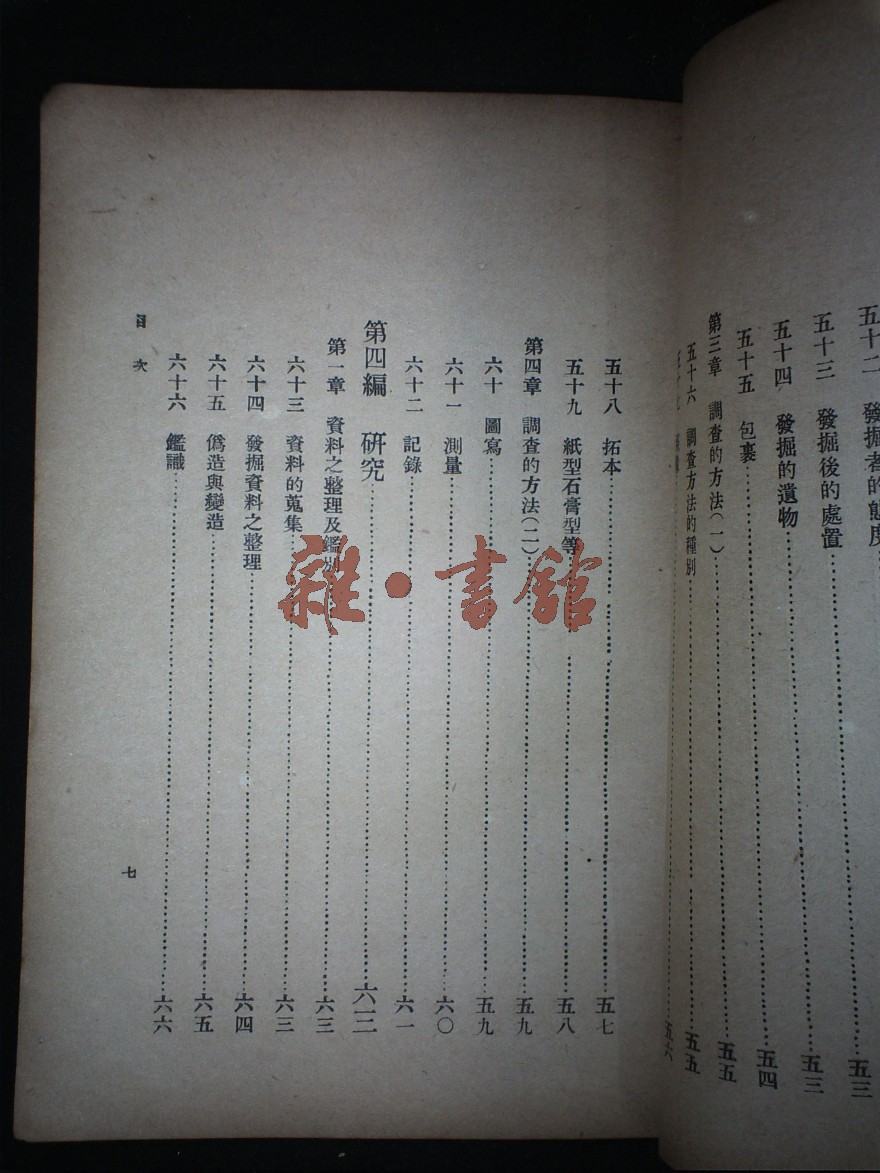 五十二 發掘者的態度……五三
五十三 發掘後的處置……五三
五十四 發掘的遺物……五四
五十五 包裹……五五
第三章 調查的方法(一)……五五
五十六 調查方法的種別……五五
五六
五十八 拓本……五七
五十九 紙型石膏型等……五八
第四章 調查的方法(二)……五九
六十 圖寫……五九
六十一 測量……六〇
六十二 記錄……六一
第四編 研究……六三
第一章 資料之整理及鑑別……六三
六十三 資料的蒐集……六三
六十四 發掘資料之整理……六四
六十五 僞造與變造……六五
六十六 鑑識……六六
目次
七
雜·書館